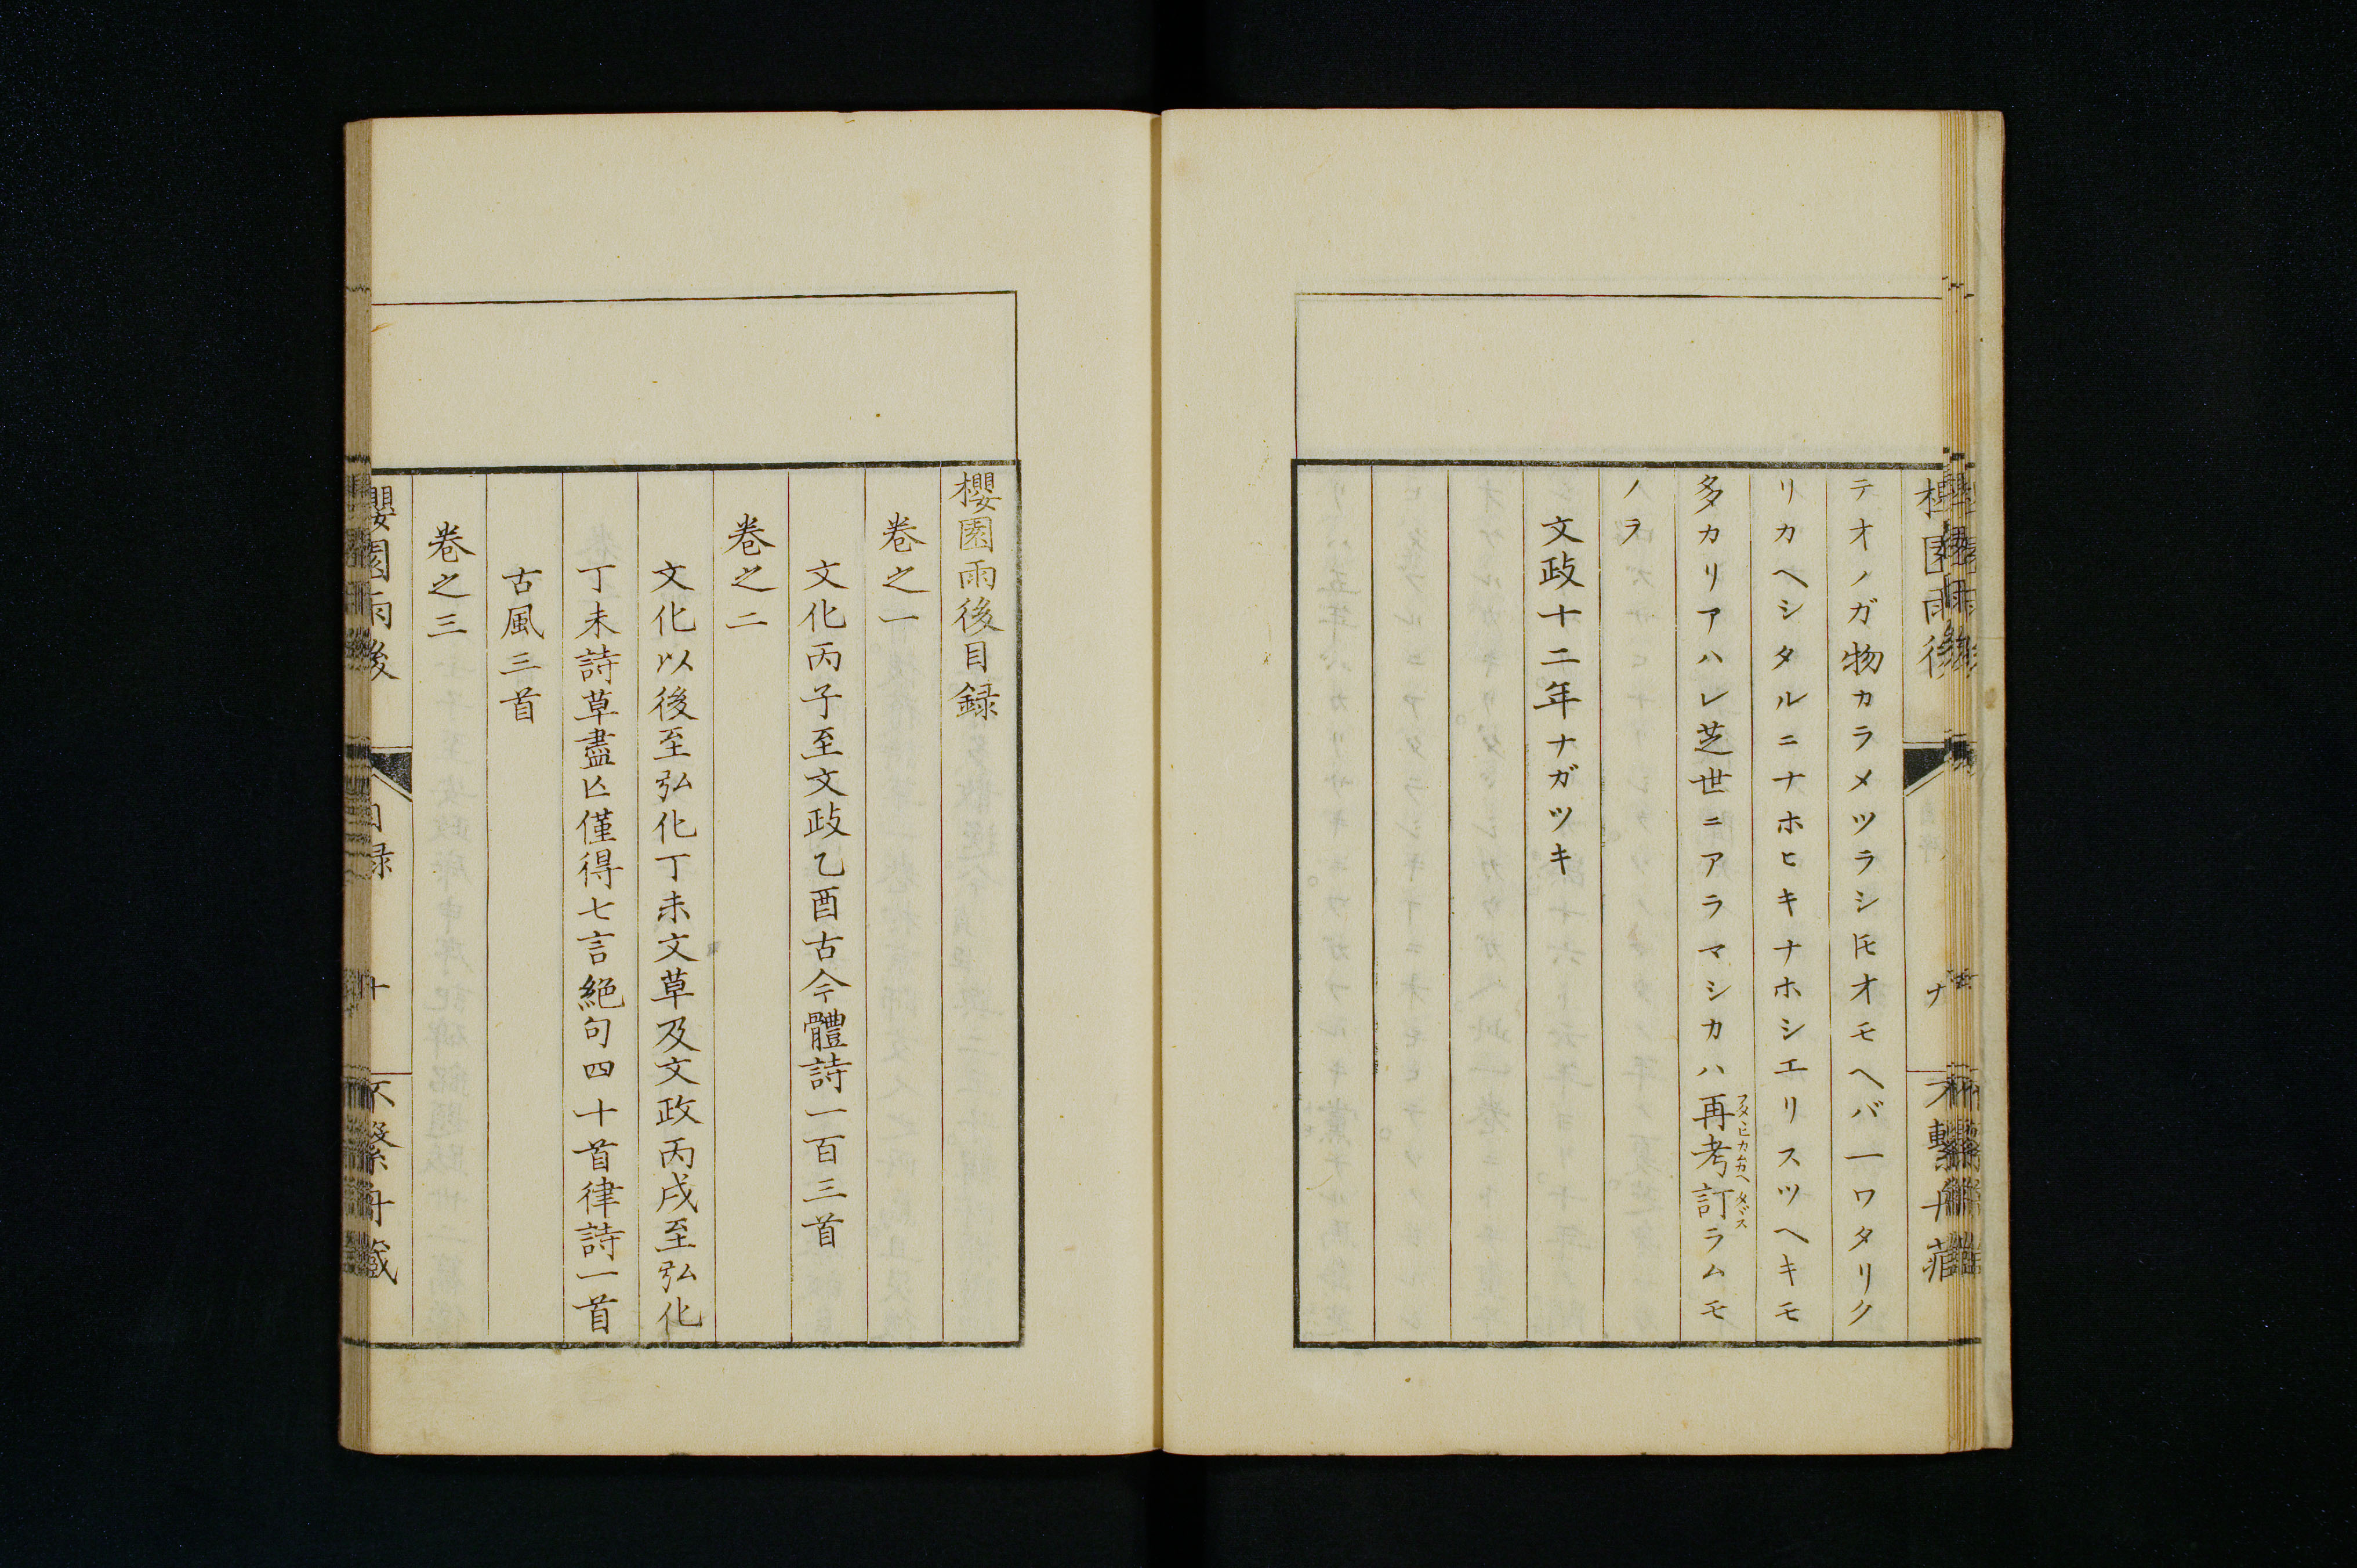 テオノガ物カラメツラシ𪜈オモヘバ一ワタリク
リカヘシタルニナホヒキナホシエリスツヘキモ
多カリアハレ芝世ニアラマシカハ再考訂ラムモ
フタヽヒカカガヘタダス
ノヲ
文政十二年ナガツキ
櫻園雨後目録
卷之一
文化丙子至文政乙酉古今體詩一百三首
卷之二
文化以後至弘化丁未文草及文政丙戌至弘化
丁未詩草盡亾僅得七言絕句四十首律詩一首
古風三首
卷之三
櫻園雨後
目録
十
不繫舟藏